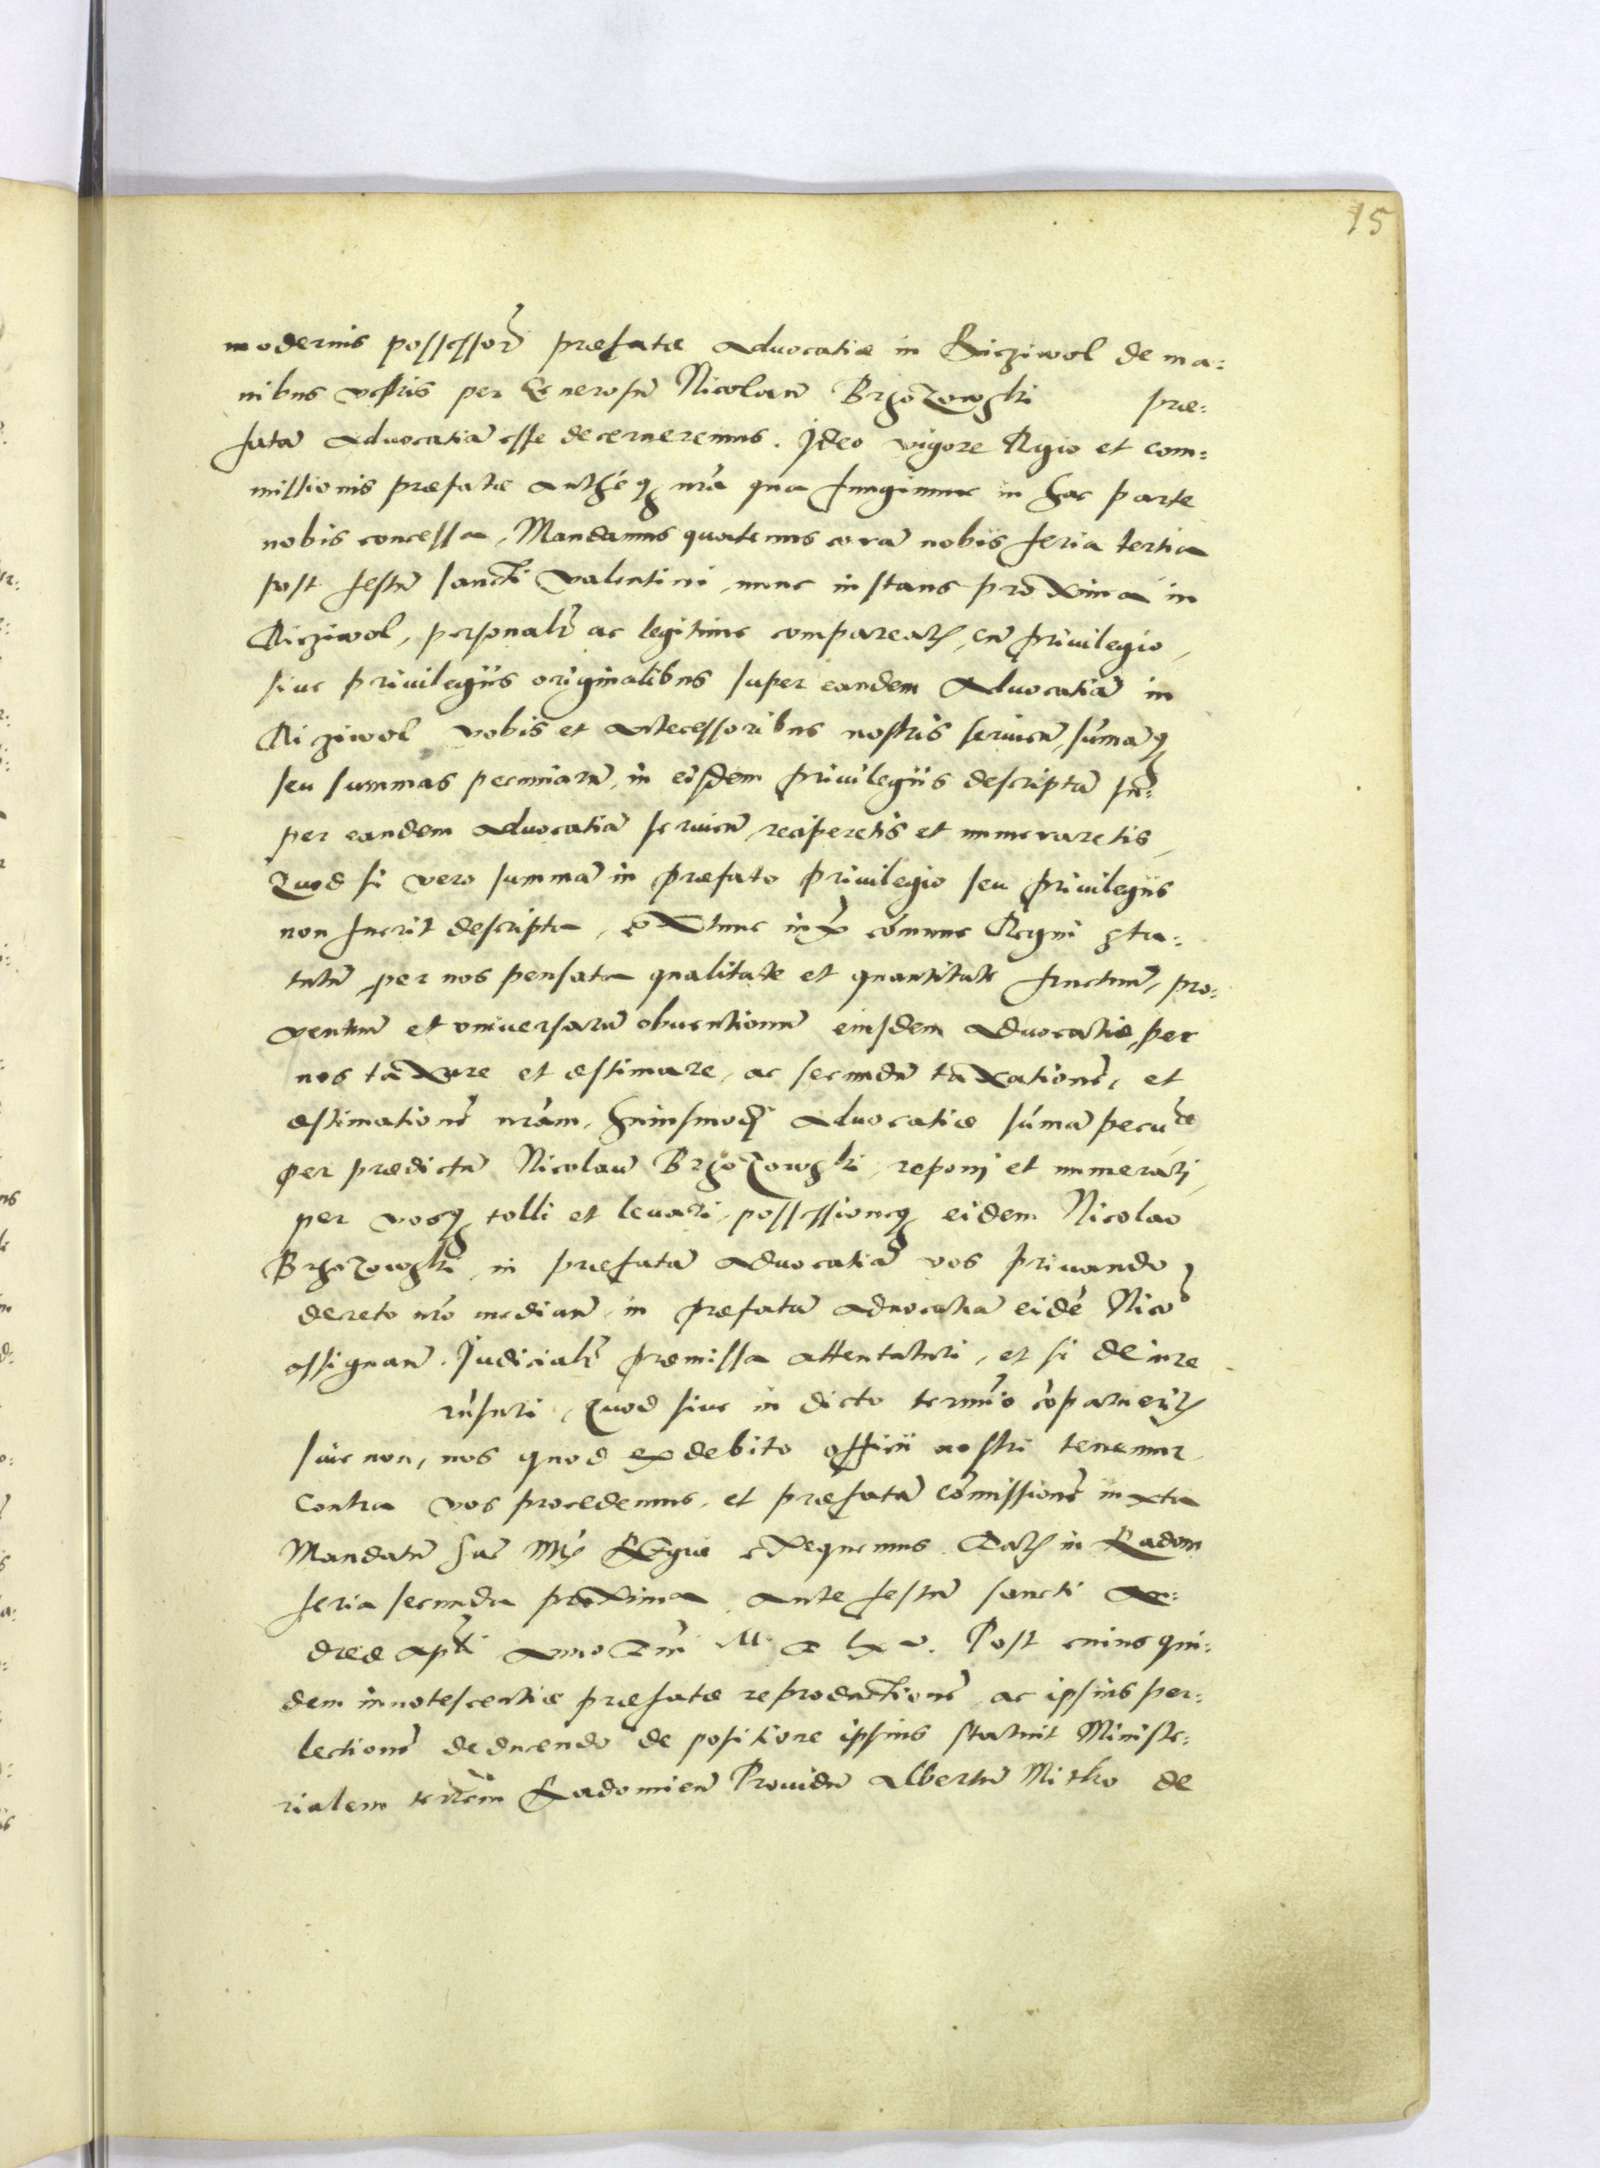 15
modernis possessor̃ præfatæ Advocatiæ in Ricziwol de ma:
nibus vestris per Generosũ Nicolaũ Brzozowski præ:
fatã Advocatiã esse decerneremus. Ideo vigore Regio et com:
missionis præfatæ Auth̃eq; nr̃a qua fungimur in hac parte
nobis concessa, Mandamus quatenus corã nobis feria tertia
post festũ sancti Valentini nunc instans proxima in
Ricziwol, personalr̃ ac legitime compareatis, cũ privilegio,
sive privilegiis originalibus super eandem Advocatiã in
Ricziwol vobis et Antecessoribus nostris servieñ, sũmãq;
seu summas pecuniarũ, in eisdem privilegiis descriptã su:
per eandem Advocatiã servieñ, reciperetis et numeraretis,
Quod si vero summã in præfato privilegio seu privilegiis
non fuerit descripta, extunc iuxta cõmune Regni Sta:
tutũ per nos pensata qualitate et quantitate fructuũ, pro:
ventuũ et universarũ obventionũ eiusdem Advocatiæ, per
nos taxare et æstimare, ac secundũ taxationẽ, et
æstimationẽ nr̃am, huiusmodi Advocatiæ sũmã pecuniæ
per prædictũ Nicolaũ Brzozowski, reponi et numerari,
per vosq; tolli et levari, possessionẽq; eidem Nicolao
Brzozowski in præfatã Advocatiã vos privando
decreto nr̃o medianẽ, in præfatã Advocatiã eidẽ Nico
assignañ. Judicialr̃ præmissa attentaturi, et si de iure
visuri, Quod sive in dicto termĩo cõparueritis
sive non, nos quod ex debito officii nostri tenemur
contra vos procedemus, et præfatã cõmissionẽ iuxta
Mandatũ Sac̃ Mtis Regiæ exequemus. Datis in Radom
feria secunda proxima Ante festũ sancti An:
dreæ Apli Anno Dni M D lxv. Post cuius qui:
dem innotescentiæ præfatæ reproductionẽ ac ipsius per:
lectionẽ deducendo de positione ipsius statuit Ministe:
rialem terrẽm Radomieñ Providũ Albertũ Mitko de